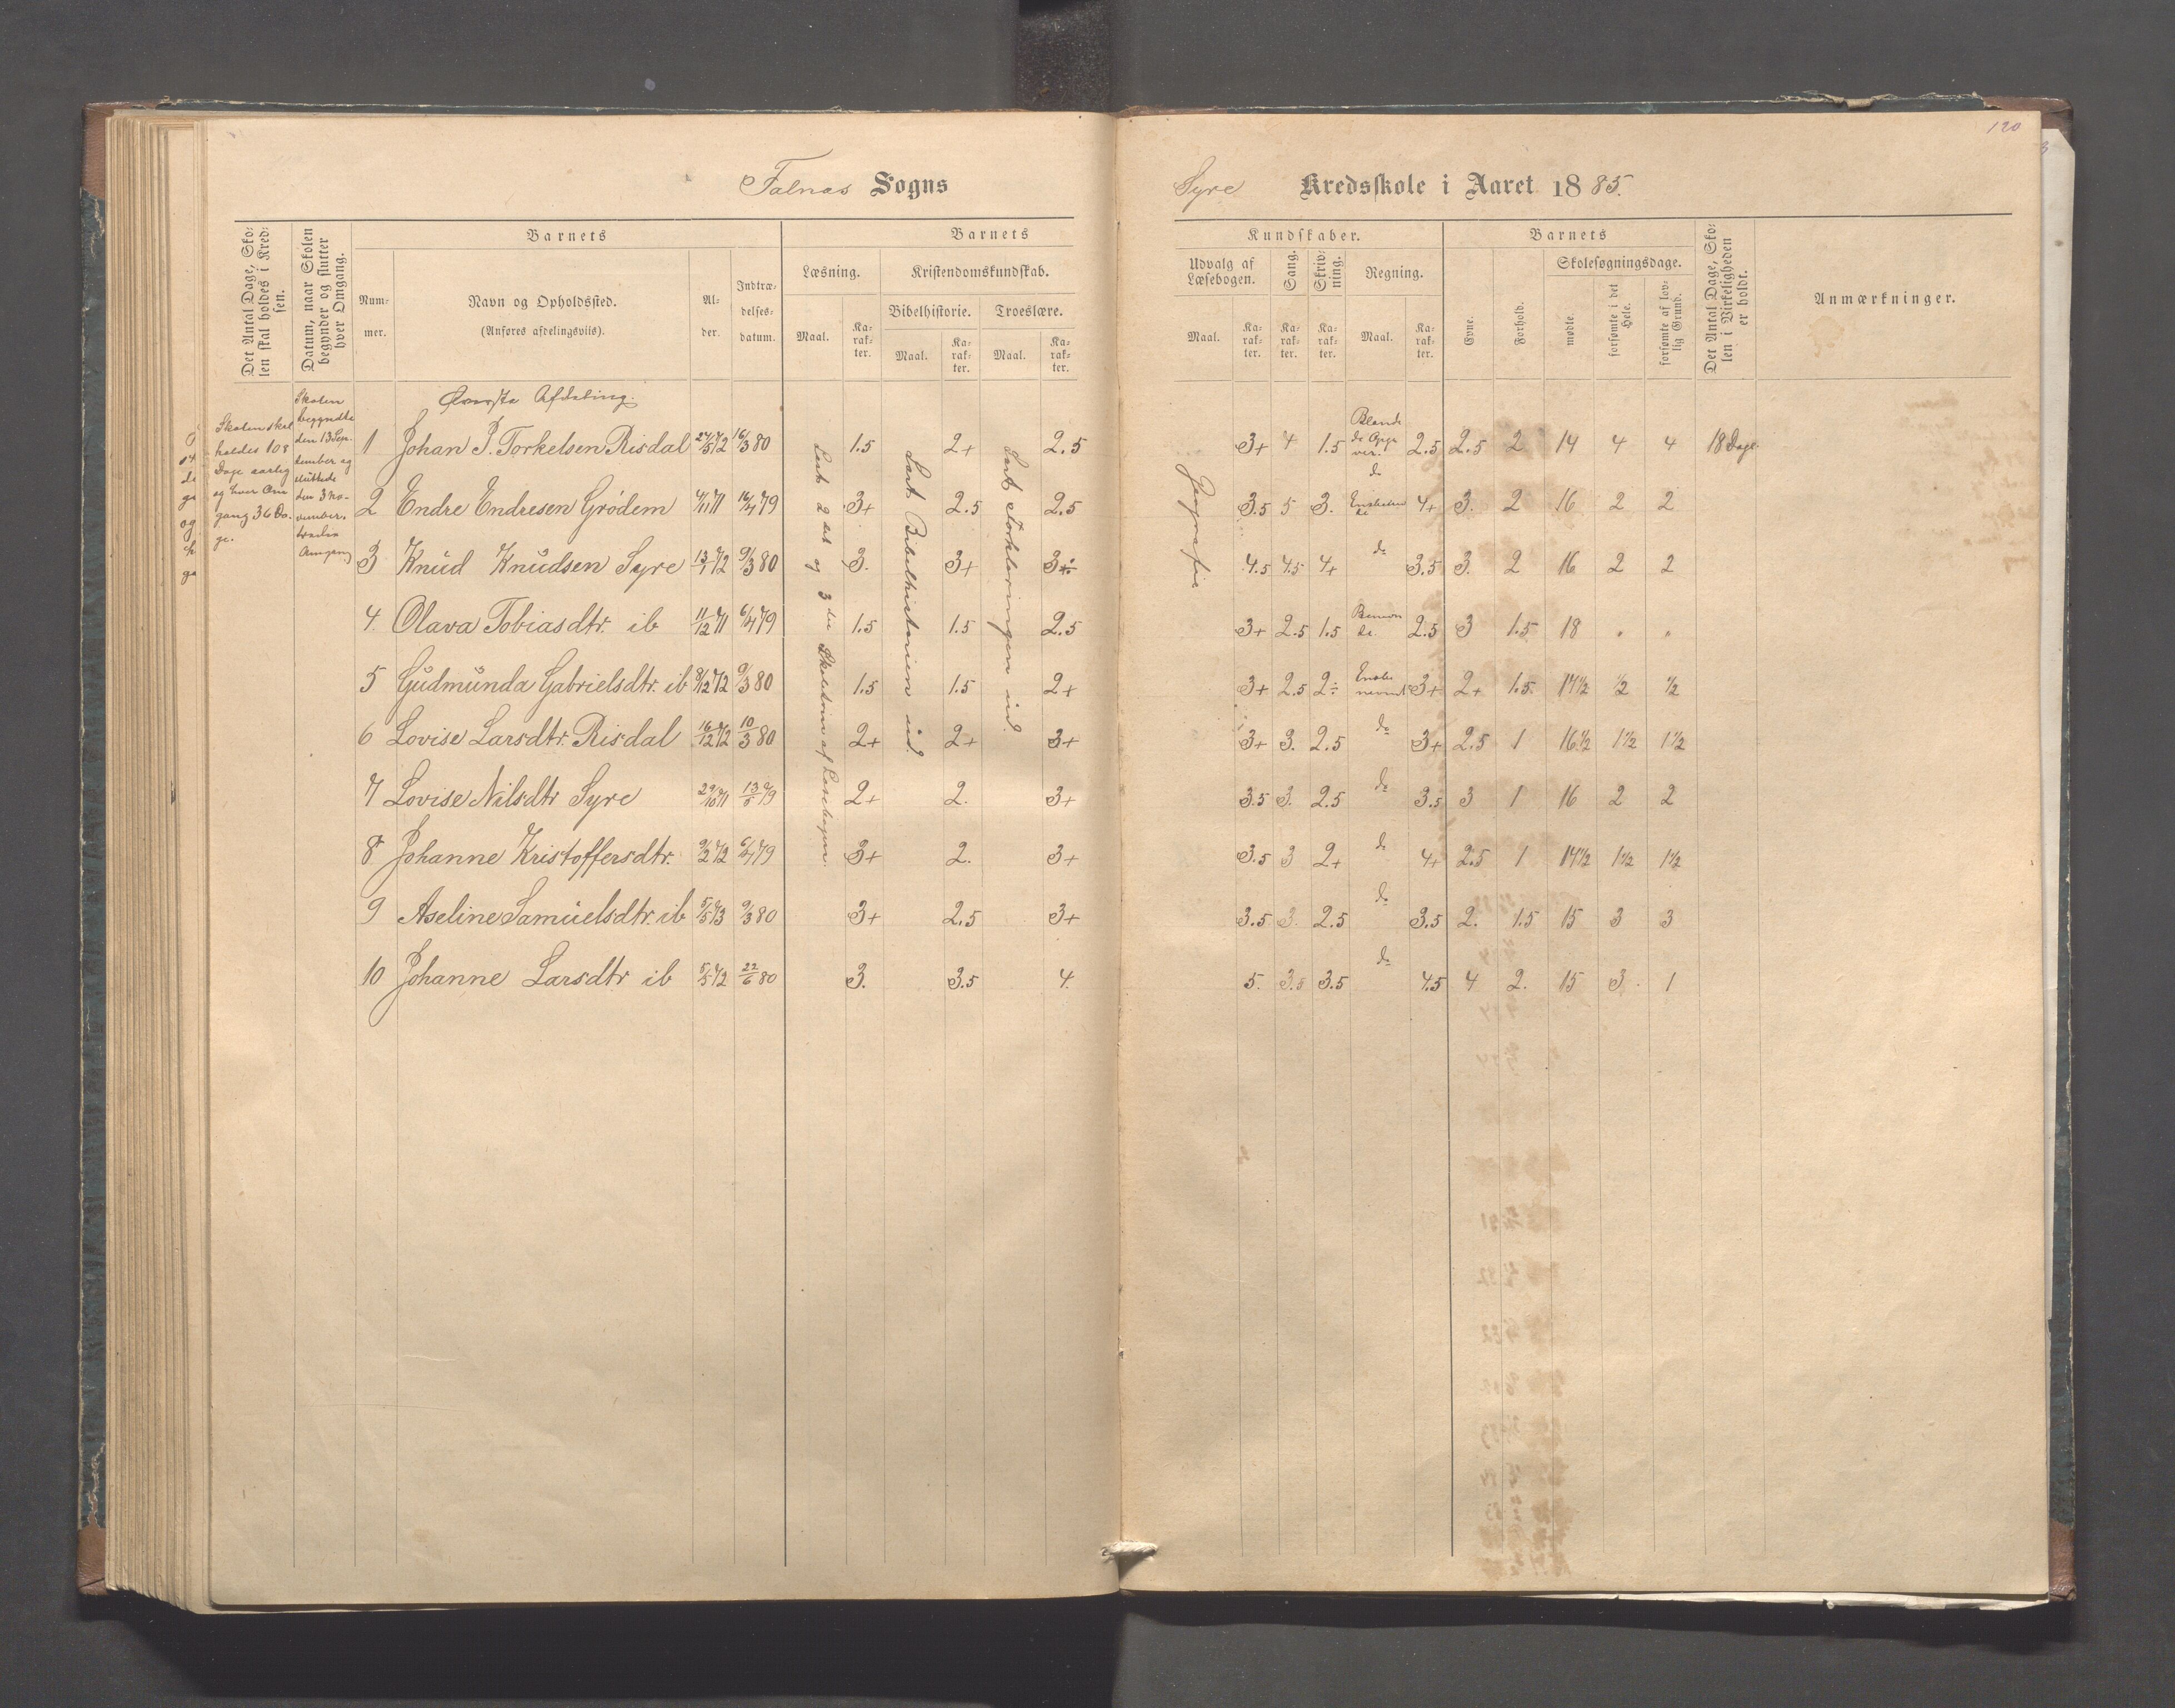 120
Falnæs Sogns
Syre Kredsskole i Aaret 1885.
Det Antal Dage, Skolen skal holdes i Kredsen.
Datum, naar Skolen begynder og slutter hver Omgang.
Barnets
Nummer.
Navn og Opholdssted.
(Anføres afdelingsvils).
Alder.
Indtrædelsesdatum.
Barnets
Læsning.
Maal.
Karakter.
Kristendomskundskab.
Bibelhistorie.
Maal.
Karakter.
Troeslære.
Maal.
Karakter.
Kundskaber.
Udvalg af Læsebogen.
Maal.
Karakter.
Sang.
Karakter.
Skrivning.
Karakter.
Regning.
Maal.
Karakter.
Barnets
Evne.
Forhold.
Skolesøgningsdage.
mødte.
forsømte i det Hele.
forsømte af lovlig Grund.
Det Antal Dage, Skolen i Virkeligheden er holdt.
Anmærkninger.
Skolen skal
holdes 108
Dage aarlig
og hver Om
gang 36 Da-
ge.
Skolen
begyndte
den 13 Sep-
tember og
sluttede
den 3 No-
vember.
tredie
Omgang
Øverste Afdeling.
Læst 2det og 3die Skoletrin af Læsebogen.
Læst Bibelhistorien ud.
Læst Forklaringen ud.
Geografie
1 Johan P. Torkelsen Risdal 24/5 72 16/3 80 1.5 2+ 2.5 3+ 4 1.5 Blande de Opga ver. 2.5 2.5 2 14 4 4 18 Dage
2 Endre Endresen Grødem 4/11 71 16/4 79 3+ 2.5 2.5 3.5 5 3. do 4+ 3. 2 16 2 2
3 Knud Knudsen Syre 13/1 72 9/3 80 3. 3+ 3+ 4.5 4.5 4+ do 3.5 3. 2 16 2 2
4. Olava Tobiasdtr. ib 11/12 71 6/4 79 1.5 1.5 2.5 3+ 2.5 1.5 2.5 3 1.5 18 " "
5 Gudmunda Gabrielsdtr. ib 8/12 72 9/3 80 1.5 1.5 2+ 3+ 2.5 2÷ 3+ 2+ 1.5. 17½ ½ ½
6 Lovise Larsdtr. Risdal 16/12 72 10/3 80 2+ 2+ 3+ 3+ 3. 2.5 do 3+ 2.5 1 16½ 1½ 1½
7 Lovise Nilsdtr Syre 29/10 71 13/5 79 2+ 2. 3+ 3.5 3. 2.5 do 3.5 3 1 16 2 2
8 Johanne Kristoffersdtr. 9/2 72 6/4 79 3+ 2. 3+ 3.5 3 2+ do 4+ 2.5 1 14½ 1½ 1½
9 Aseline Samuelsdtr. ib 5/5 73 9/3 80 3+ 2.5 3+ 3.5 3. 2.5 do 3.5 2. 1.5 15 3 3
10 Johanne Larsdtr ib 5/5 72 22/6 80 3. 3.5 4. 5. 3.5 3.5 do 4.5 4 2. 15 3. 1